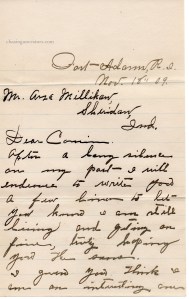 Fort Adams, R.I.
Nov. 18th 09.
Mr. Arza Millikan,
Sheridan,
Ind.
Dear Cousin:
After a long silence
on my part I will
endeavor to write you
a few lines to let
you know I am still
living and getting on
fine, truly hoping
you the same.
I guess you think I
am an interesting one